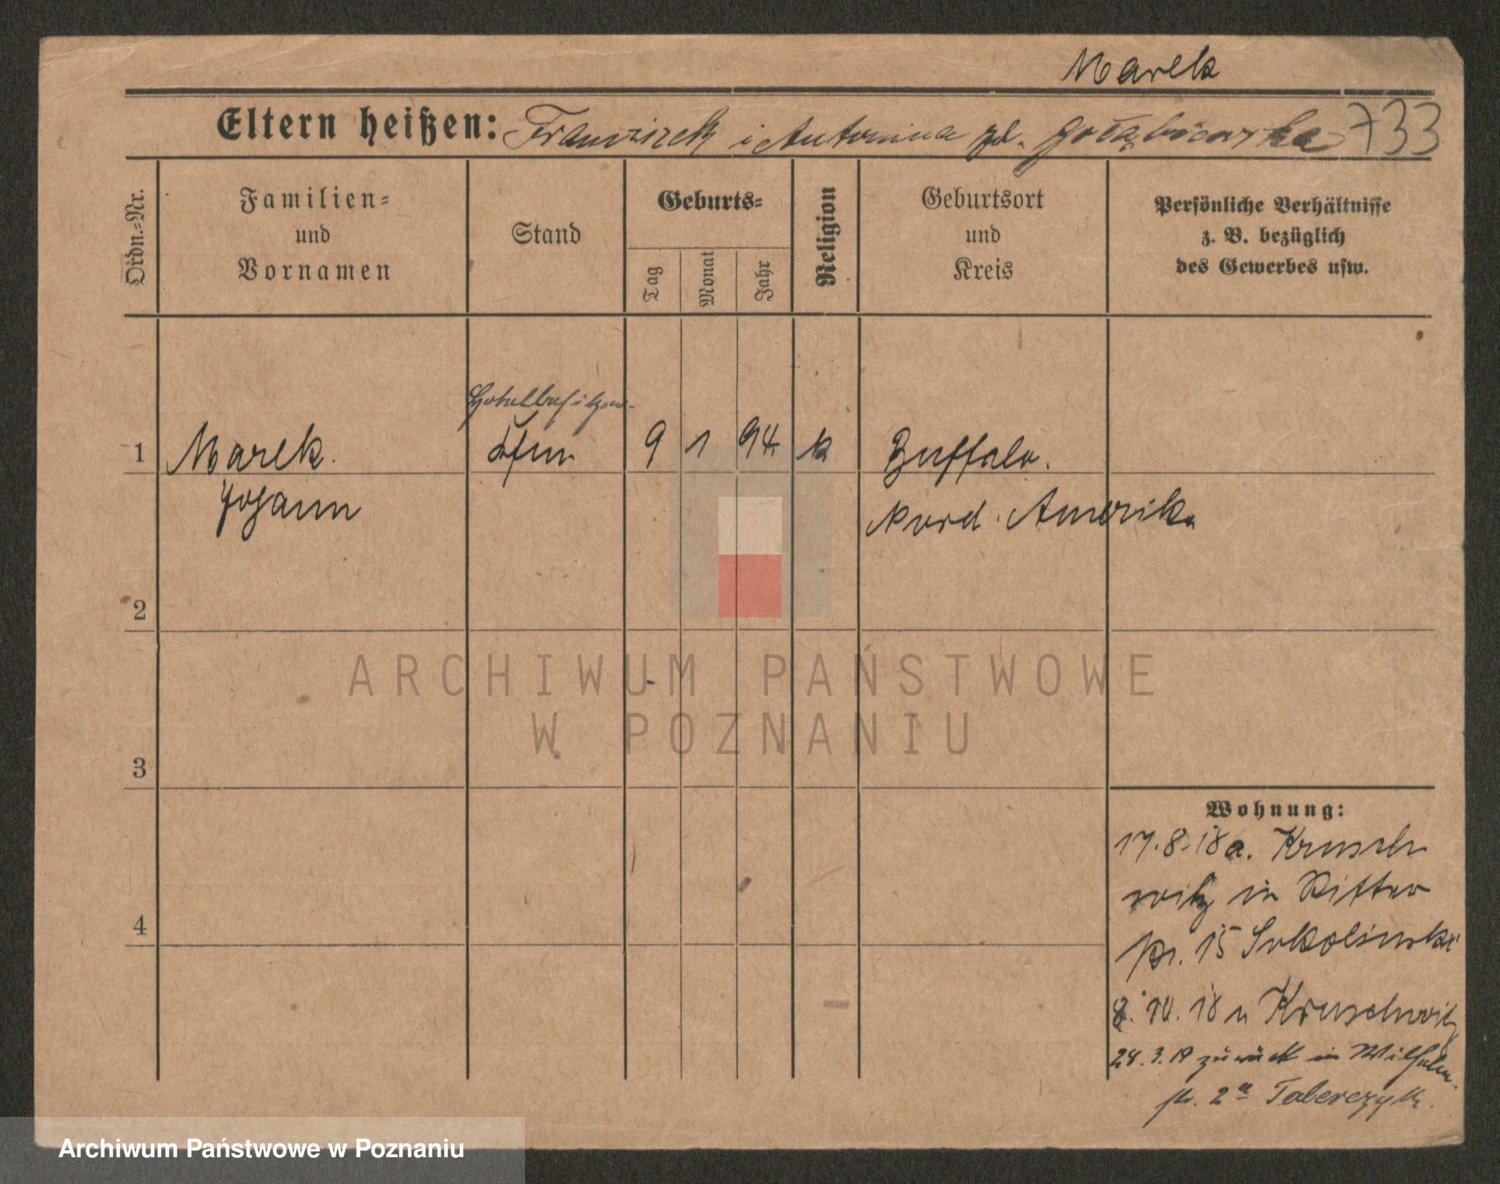 Marek
Eltern heißen: Franciszek i Antonina zd. Gołębiewska 733
Ordn.-Nr.
Familien-
und
Vornamen
Stand
Geburts-
Tag
Monat
Jahr
Religion
Geburtsort
und
Kreis
Persönliche Verhältnisse
z. B. bezüglich
des Gewerbes usw.
Hotelbesitzer
1 Marek. 9 1 94 k Buffalo.
Johann Nord. Amerika
2
ARCHIWUM PAŃSTWOWE
W POZNANIU
3
Wohnung:
17.8.18 a. Krusch
witz in Ritter
str. 15 Sokolinski
4
8.10.18 n Kruschwitz
24.3.19 zurück in Wilhelm
str. 2a Taberczyk.
Archiwum Państwowe w Poznaniu